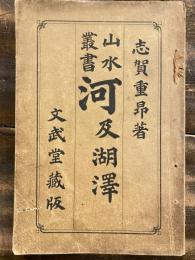 志賀重昂著
山水叢書
河及湖澤
文武堂藏版